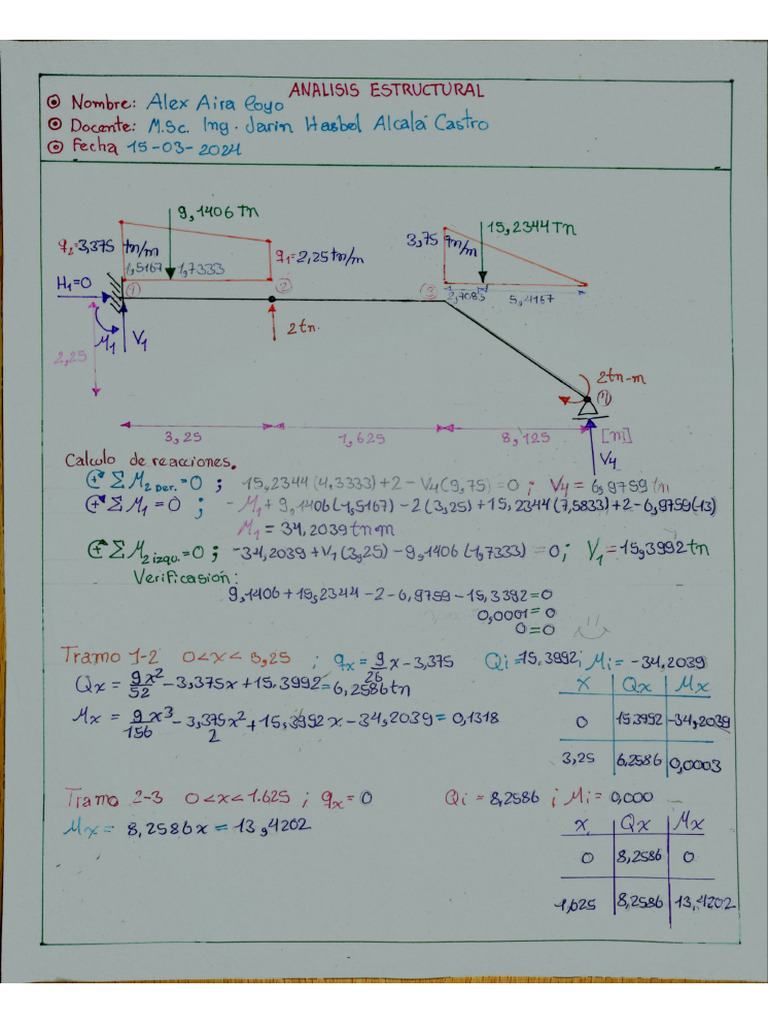 ANALISIS ESTRUCTURAL
Nombre: Alex Aira Poyo
Docente: M.Sc. Ing. Jarin Hasbel Alcalá Castro
Fecha 15-03-2024
9,1406 tn
15,2344 tn
q2=3,375 tn/m
q1=2,25 tn/m
3,75 tn/m
1,5167
1,7333
2,7083
5,4167
H1=0
1
2
3
M1
V1
2 tn.
2,25
2 tn-m
4
3,25
1,625
8,125
[m]
V4
Calculo de reacciones.
⊕ ΣM2 Der.=0 ; 15,2344(4,3333)+2-V4(9,75)=0 ; V4=6,9759 tn
⊕ ΣM1=0 ; -M1+9,1406(1,5167)-2(3,25)+15,2344(7,5833)+2-6,9759(13)
M1=34,2039 tn-m
⊕ ΣM2 izqu.=0 ; -34,2039+V1(3,25)-9,1406(1,7333)=0 ; V1=15,3992 tn
Verificasión:
9,1406+15,2344-2-6,9759-15,3392=0
0,0001=0
0=0
Tramo 1-2 0<x<3,25 ; qx=9/26 x-3,375 Qi=15,3992 ; Mi=-34,2039
Qx=9x²/52-3,375x+15,3992=6,2586 tn
Mx=9x³/156-3,375x²/2+15,3992x-34,2039=0,1318
x Qx Mx
0 15.3992 -34,2039
3,25 6,2586 0,0003
Tramo 2-3 0<x<1.625 ; qx=0 Qi=8,2586 ; Mi=0,000
Mx=8,2586x=13,4202
x Qx Mx
0 8,2586 0
1,625 8,2586 13,4202